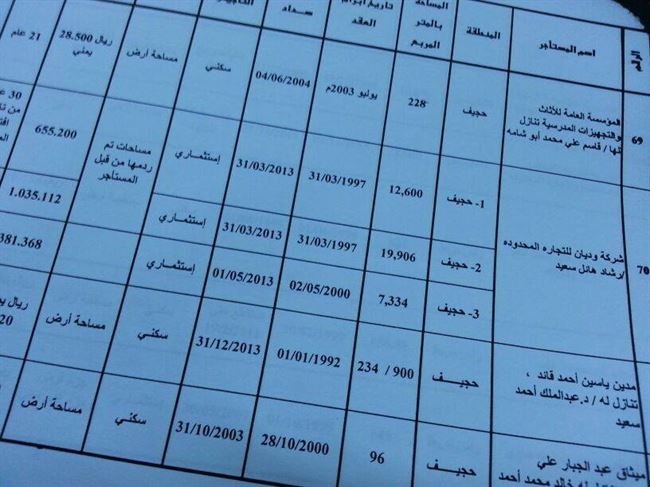 الرقم
اسم المستأجر
المنطقة
المساحة
بالمتر
المربع
تاريخ ابرام
العقد
سداد
69
المؤسسة العامة للأثاث
والتجهيزات المدرسية تنازل
لها / قاسم علي محمد أبو شامه
حجيف
228
يوليو 2003م
04/06/2004
سكني
مساحة أرض
28.500 ريال
يمني
21 عام
70
شركة وديان للتجاره المحدوده
/رشاد هائل سعيد
1- حجيف
12,600
31/03/1997
31/03/2013
إستثماري
مساحات تم
ردمها من قبل
المستأجر
655.200
30
2- حجيف
19,906
31/03/1997
31/03/2013
إستثماري
1.035.112
3- حجيف
7,334
02/05/2000
01/05/2013
إستثماري
381.368
مدين ياسين أحمد قائد ،
تنازل له / د.عبدالملك أحمد
سعيد
حجيف
234 / 900
01/01/1992
31/12/2013
سكني
مساحة أرض
ريال
20
ميثاق عبد الجبار علي
له خالد محمد أحمد
حجيف
96
28/10/2000
31/10/2003
سكني
مساحة أرض